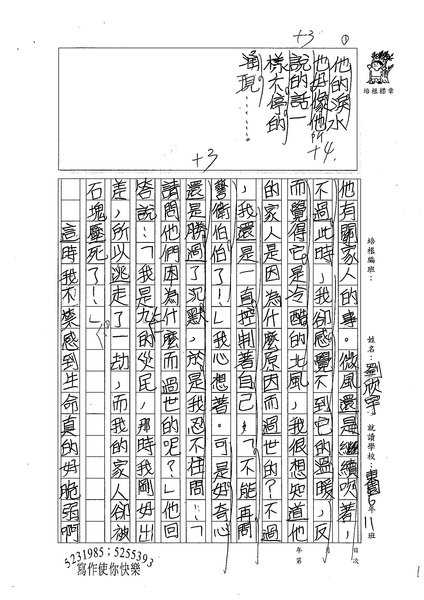 他有關家人的事。微風還是繼續吹著，
不過此時，我卻感覺不到它的溫暖，反
而覺得它是冷酷的北風，我很想知道他
的家人是因為什麼原因而過世的？不過
，我還是一直控制著自己：「不能再問
警衛伯伯了！」我心想著。可是好奇心
還是勝過了沉默，於是我忍不住問：「
請問他們因為什麼而過世的呢？」他回
答說：「我是九的災民，那時我剛好出
差，所以逃走了一劫，而我的家人卻被
石塊壓死了！」
這時我不禁感到生命真的好脆弱啊
他的淚水
也好像他所
說的話一
樣不停的
涌現……
+3
+4
+3
①
培根標章
培根編班：
姓名：劉欣宇
就讀學校：
6年11班
年 月 日
第 次
5231985；5255393
寫作使你快樂
1